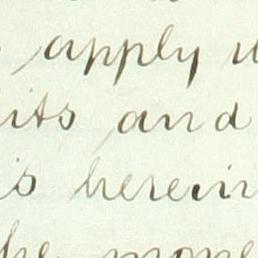 apply
its and
is herein
he mone